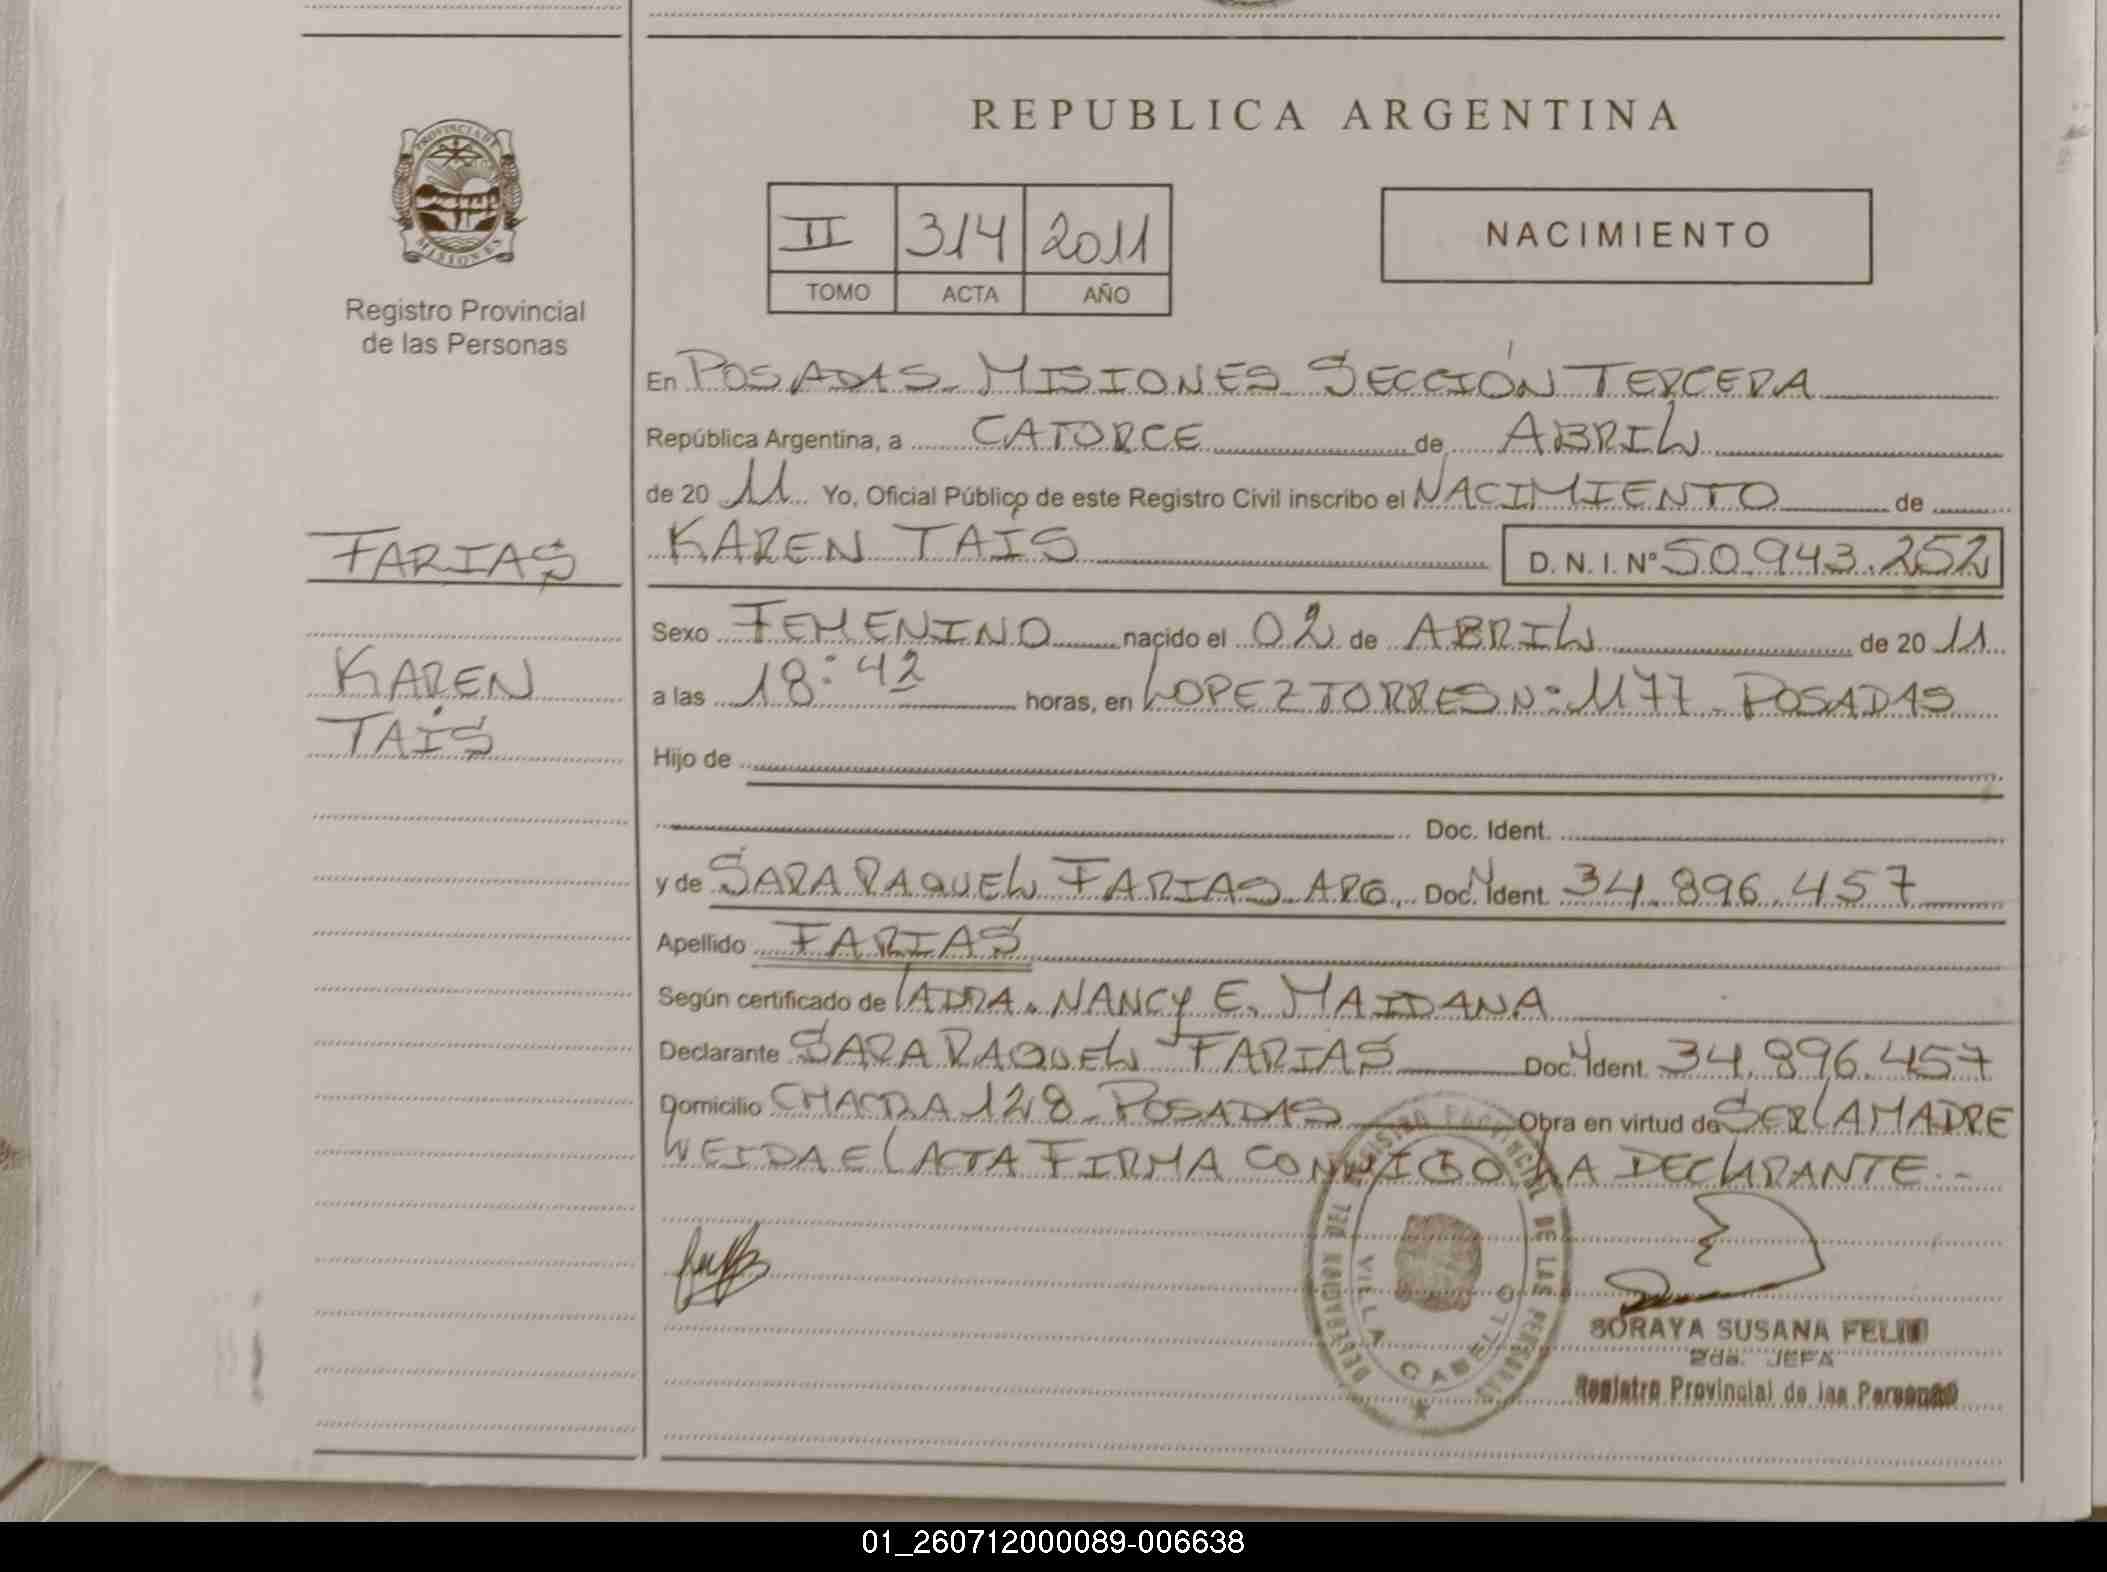 REPUBLICA ARGENTINA
PROVINCIA DE
MISIONES
Registro Provincial
de las Personas
II 314 2011
TOMO ACTA AÑO
NACIMIENTO
En POSADAS - MISIONES SECCIÓN TERCERA
República Argentina, a CATORCE de ABRIL
de 20 11 Yo, Oficial Público de este Registro Civil inscribo el NACIMIENTO de
FARIAS
KAREN TAÍS D. N. I. Nº 50.943.252
Sexo FEMENINO nacido el 02 de ABRIL de 20 11
KAREN
TAÍS
a las 18:42 horas, en LOPEZ TORRES Nº: 1177 - POSADAS
Hijo de
Doc. Ident.
y de SARA RAQUEL FARIAS ARG. Doc. Ident. 34.896.457
Apellido FARIAS
Según certificado de NANCY E. MAIDANA
Declarante SARA RAQUEL FARIAS Doc. Ident. 34.896.457
Domicilio CHACRA 128 - POSADAS Obra en virtud de SER LA MADRE
LEIDA EL ACTA FIRMA CONMIGO LA DECLARANTE.-
REGISTRO PROVINCIAL DE LAS PERSONAS
VILLA CABELLO
SORAYA SUSANA
2da. JEFA
Registro Provincial de las Personas
01_260712000089-006638